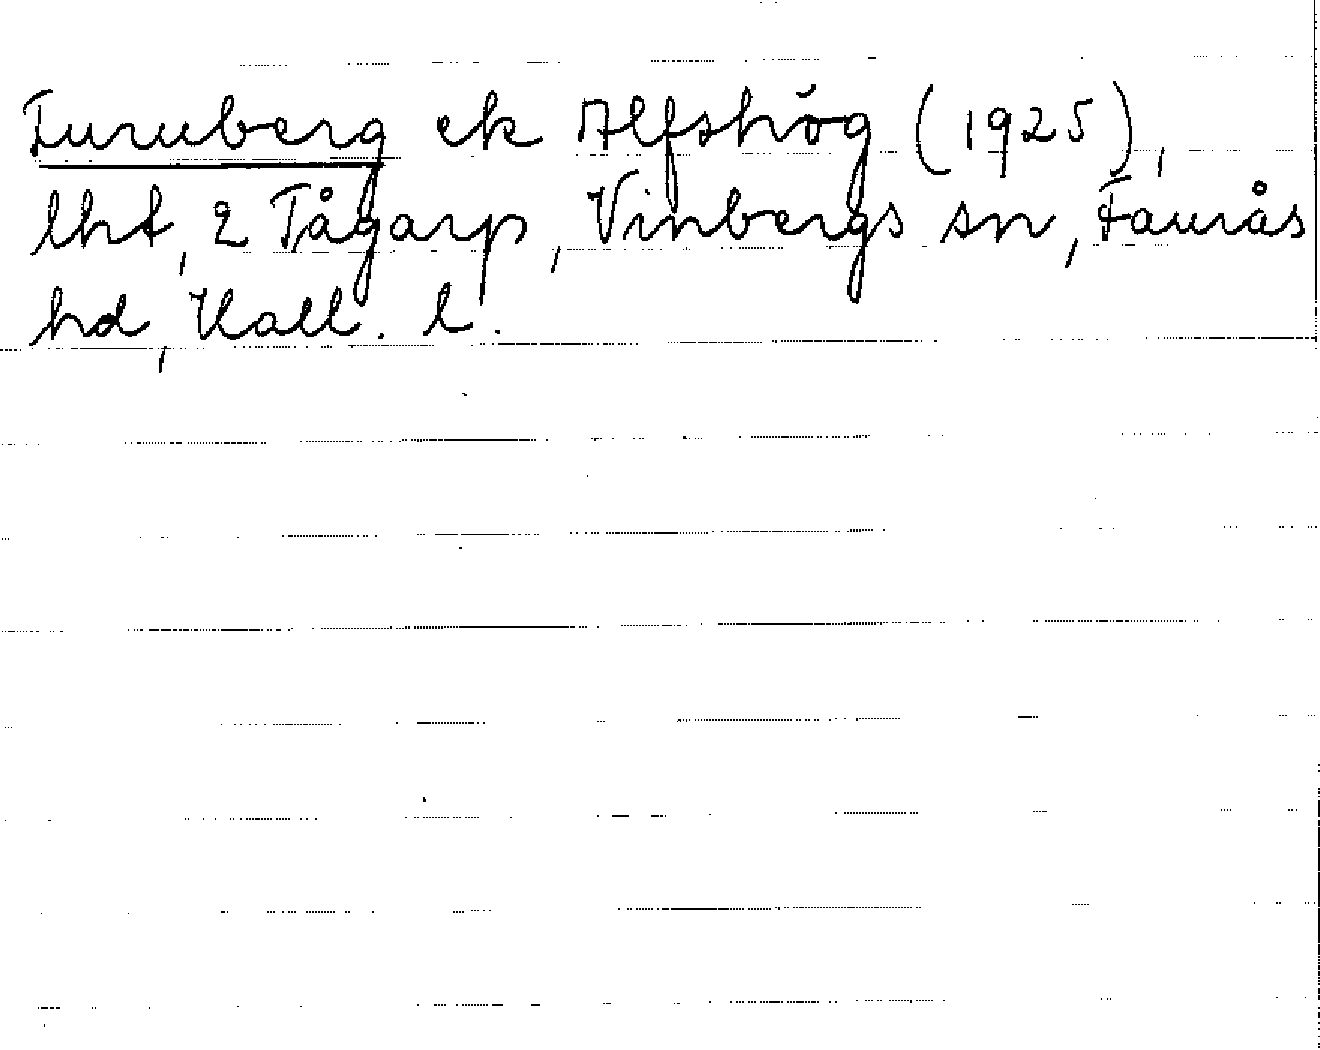 Furuberg ek Alfshög (1925),
lht, 2 Tågarp, Vinbergs sn, Faurås
hd, Hall. l.